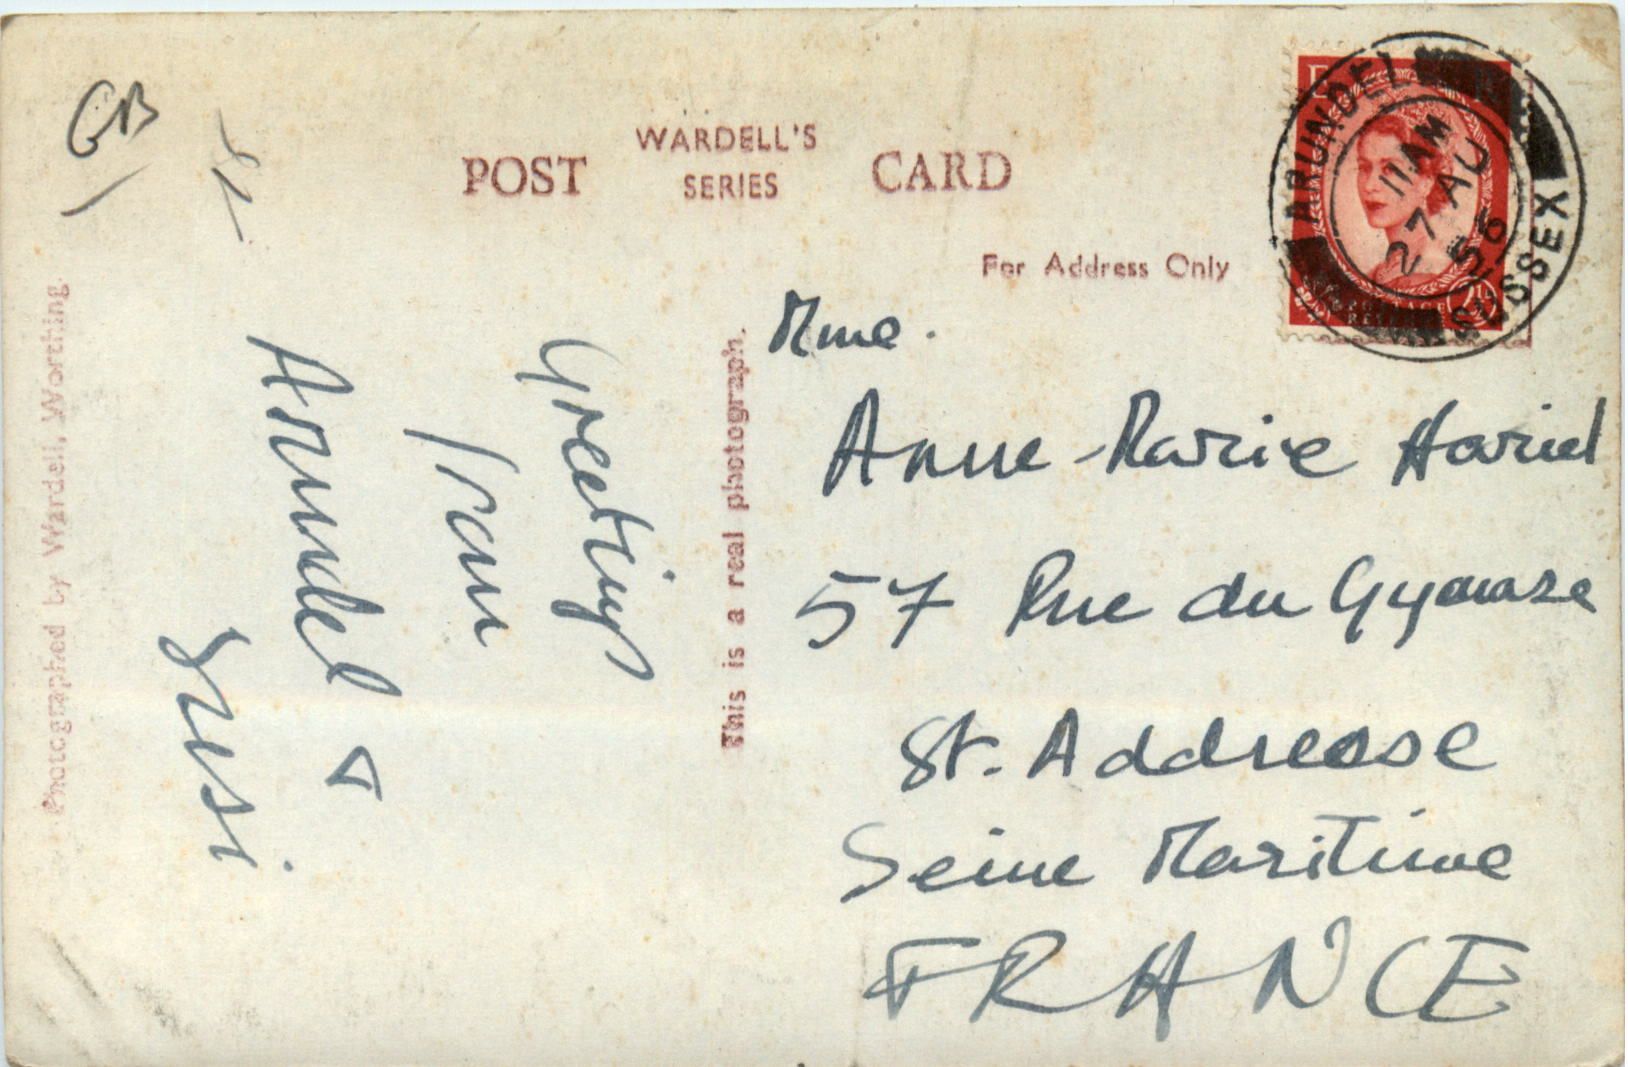 GB
POST
WARDELL'S
SERIES
CARD
For Address Only
ARUNDEL
11 AM
27 AU
56
SUSSEX
2½D
Mme.
Anne-Marie
57 Rue du Gymnase
St. Addresse
Seine Maritime
FRANCE
This is a real photograph.
Greetings
from
Arundel
Photographed by Wardell, Worthing.